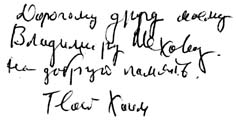 Дорогому другу моему
Владимиру
на добрую память.
Твой Хаим